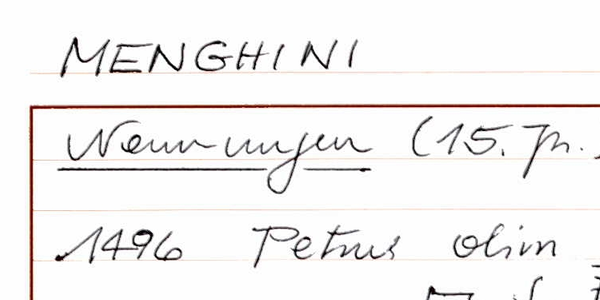 MENGHINI
Nennungen (15. Jh.)
1496 Petrus olim